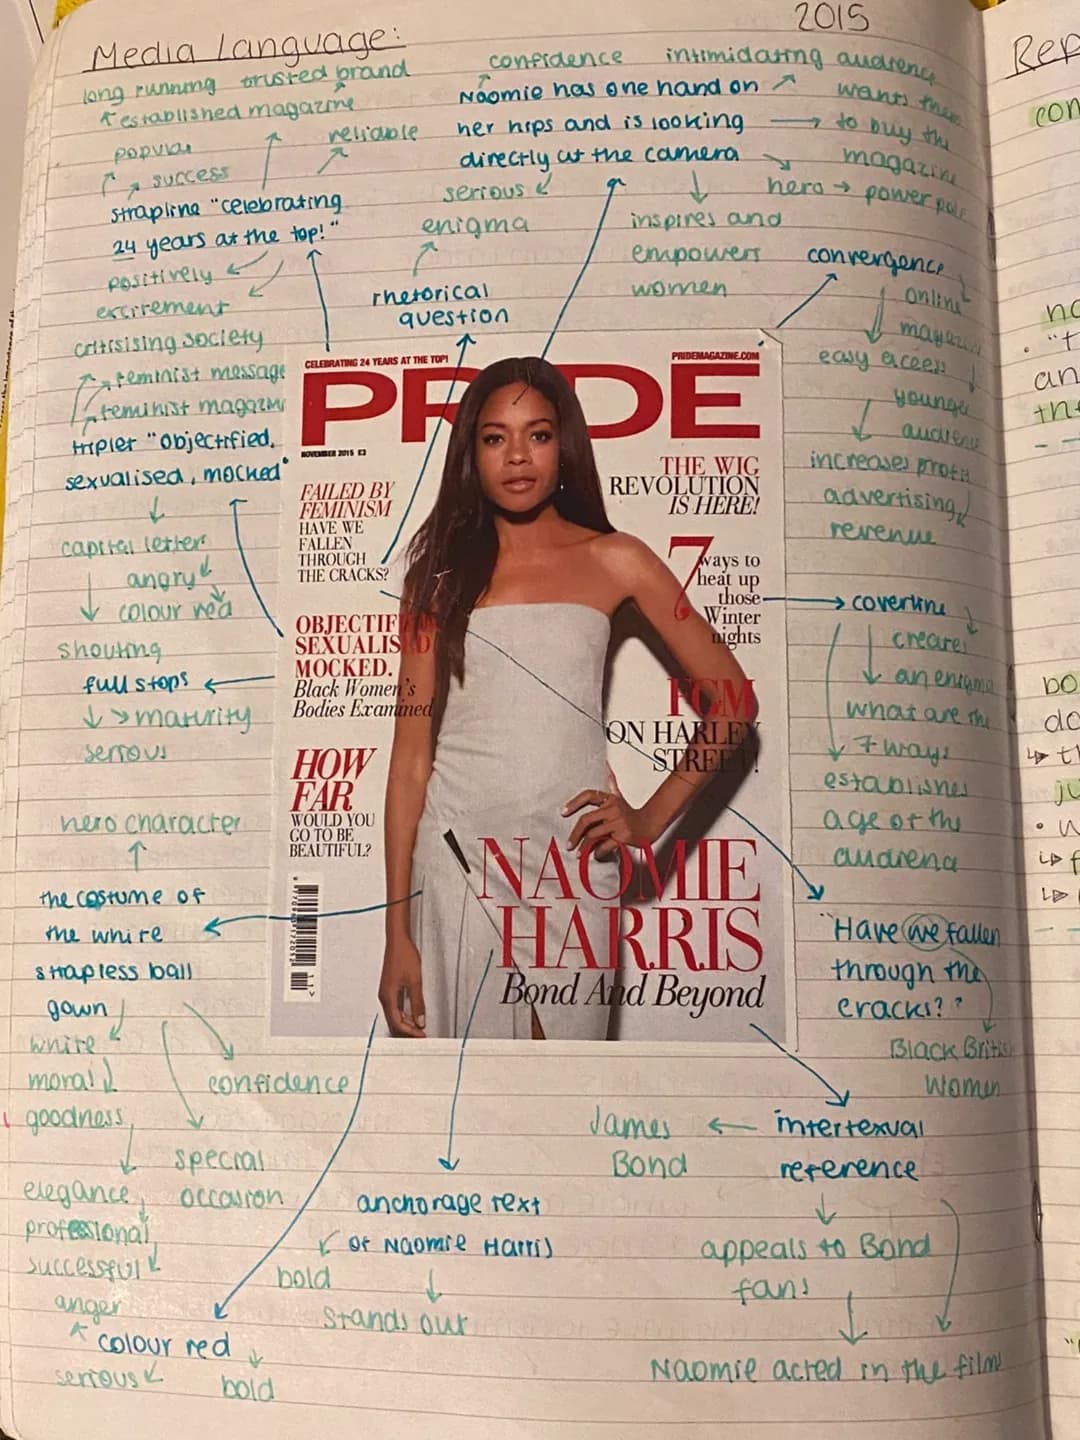 Media Language:
2015
long running trusted brand
established magazine
popular
reliable
success
strapline "celebrating
24 years at the top!"
positively
excitement
confidence intimidating audience
Naomie has one hand on
her hips and is looking
directly at the camera
wants them
to buy the
magazine
hero → power pole
serious
enigma
inspires and
empowers
women
rhetorical
question
convergence
online
easy access
younger
audience
increases profit
advertising
revenue
critisising society
feminist message
feminist magazine
tripler "objectified,
sexualised, mocked"
capital letters
angry
colour red
shouting
full stops
maturity
serious
CELEBRATING 24 YEARS AT THE TOP!
PRIDEMAGAZINE.COM
PRIDE
NOVEMBER 2015 £3
FAILED BY
FEMINISM
HAVE WE
FALLEN
THROUGH
THE CRACKS?
OBJECTIFIED
SEXUALISED
MOCKED.
Black Women's
Bodies Examined
HOW
FAR
WOULD YOU
GO TO BE
BEAUTIFUL?
THE WIG
REVOLUTION
IS HERE!
7 ways to
heat up
those
Winter
nights
FGM
ON HARLEY
STREET!
NAOMIE
HARRIS
Bond And Beyond
coverline
creates
an enigma
what are the
7 ways
establishes
age of the
audience
"Have we fallen
through the
cracks?"
Black British
Women
hero character
the costume of
the white
strapless ball
gown
white
moral
goodness
elegance
professional
successful
confidence
special
occasion
anger
colour red
serious
bold
anchorage text
of Naomie Harris
bold
stands out
James
Bond
intertexual
reference
appeals to Bond
fans
Naomie acted in the films
Rep
con